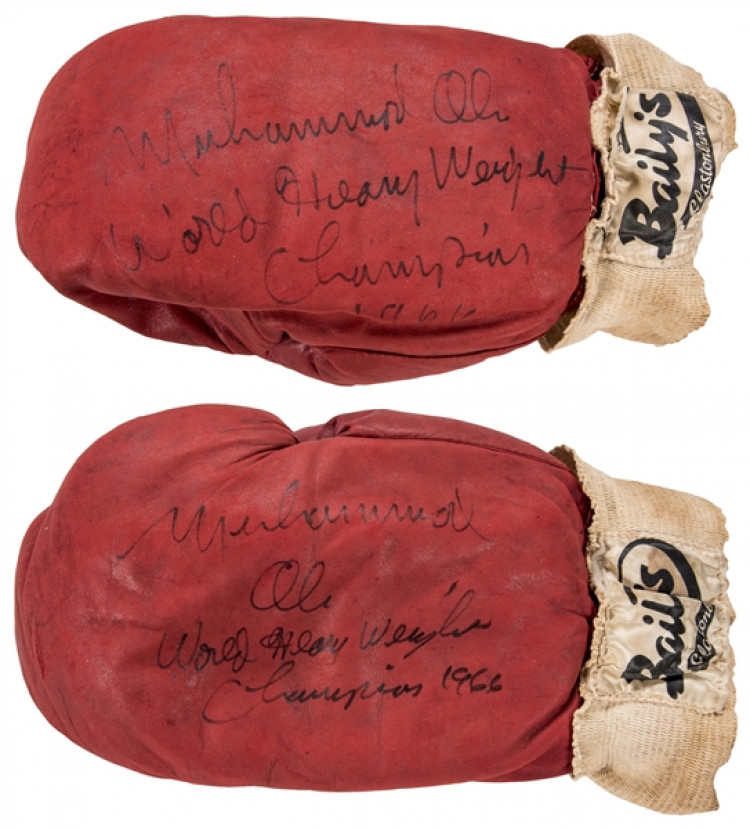 Muhammad Ali
World Heavy Weight
Champion
1966
Baily's
Glastonbury
Muhammad
Ali
World Heavy Weight
Champion 1966
Baily's